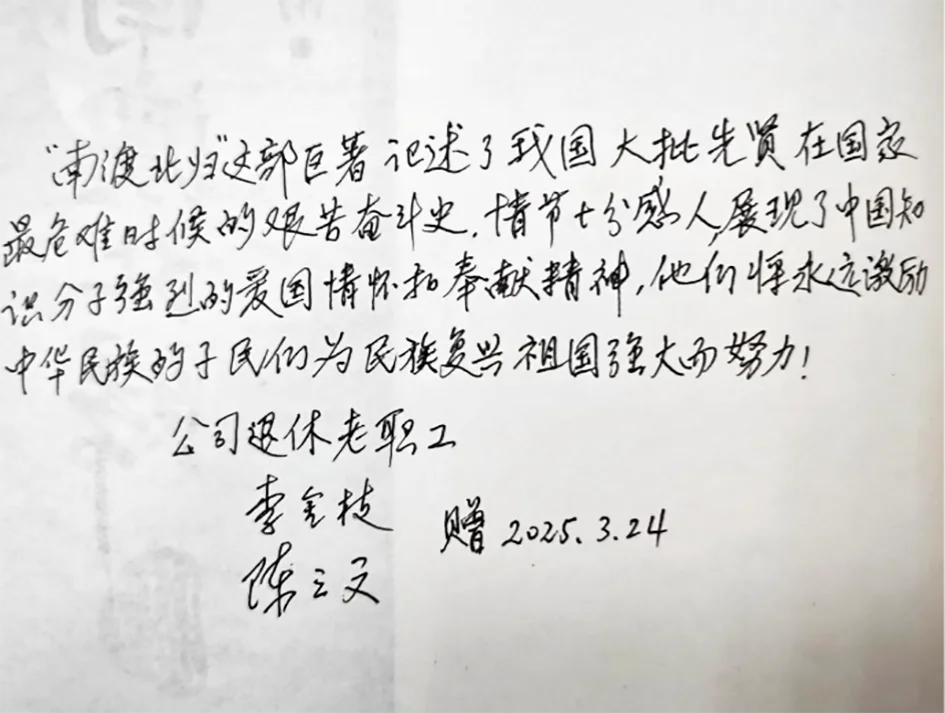 “南渡北归”这部巨著记述了我国大批先贤在国家
最危难时候的艰苦奋斗史,情节十分感人,展现了中国知
识分子强烈的爱国情怀和奉献精神,他们将永远激励
中华民族的子民们为民族复兴祖国强大而努力!
公司退休老职工
李金枝
赠 2025.3.24
陈三文